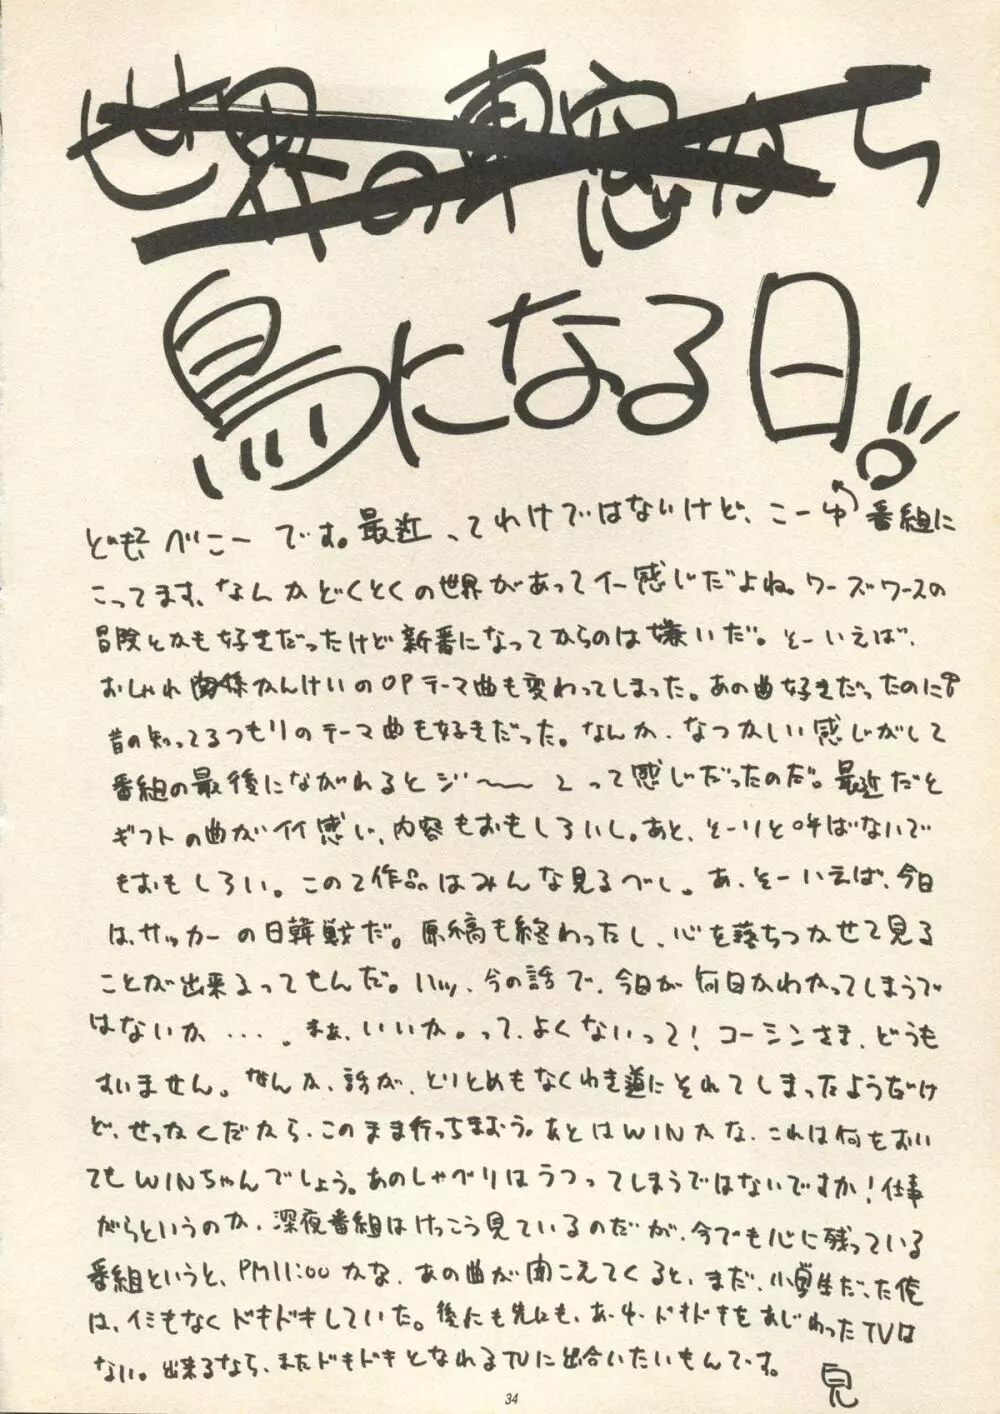 世界の車窓から
鳥になる日。
どもべこーです。最近ってわけではないけど、こーゆ番組に
こってます、なんかどくとくの世界があってイー感じだよね。ワーズワースの
冒険とかも好きだったけど新番になってからのは嫌いだ。そーいえば、
おしゃれ関係かんけいのOPテーマ曲も変わってしまった。あの曲好きだったのに
昔の知ってるつもりのテーマ曲も好きだった。なんか、なつかしい感じがして
番組の最後にながれるとジ〜〜んって感じだったのだ。最近だと
ギフトの曲がイイ感じ、内容もおもしろいし。あと、そーりと呼ばないで
もおもしろい。この2作品はみんな見るべし。あ、そーいえば、今日
は、サッカーの日韓戦だ。原稿も終わったし、心を落ちつかせて見る
ことが出来るってもんだ。ハッ、今の話で、今日が何日かわかってしまうで
はないか・・・。まぁ、いいか。って、よくないって!コーシンさま、どうも
すいません。なんか、話が、とりとめもなくわき道にそれてしまったようだけ
ど、せっかくだから、このまま行っちまおう。あとはWINかな、これは何をおい
てもWINちゃんでしょう。あのしゃべりはうつってしまうではないですか!仕事
がらというのか、深夜番組はけっこう見ているのだが、今でも心に残っている
番組というと、PM11:00かな、あの曲が聞こえてくると、まだ、小学生だった俺
は、イミもなくドキドキしていた。後にも先にも、あ、ゆ、ドキドキをあじわったTVは
ない。出来るなら、またドキドキとなれるTVに出合いたいもんです。
34